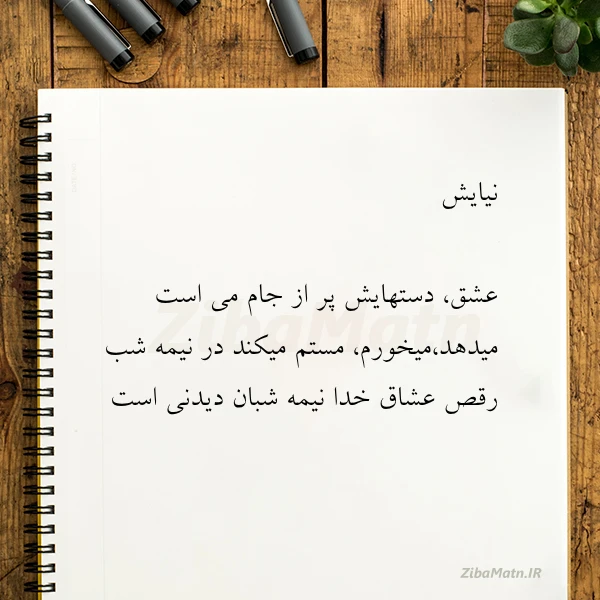 نیایش
عشق، دستهایش پر از جام می است
میدهد،میخورم، مستم میکند در نیمه شب
رقص عشاق خدا نیمه شبان دیدنی است
ZibaMatn
ZibaMatn.IR